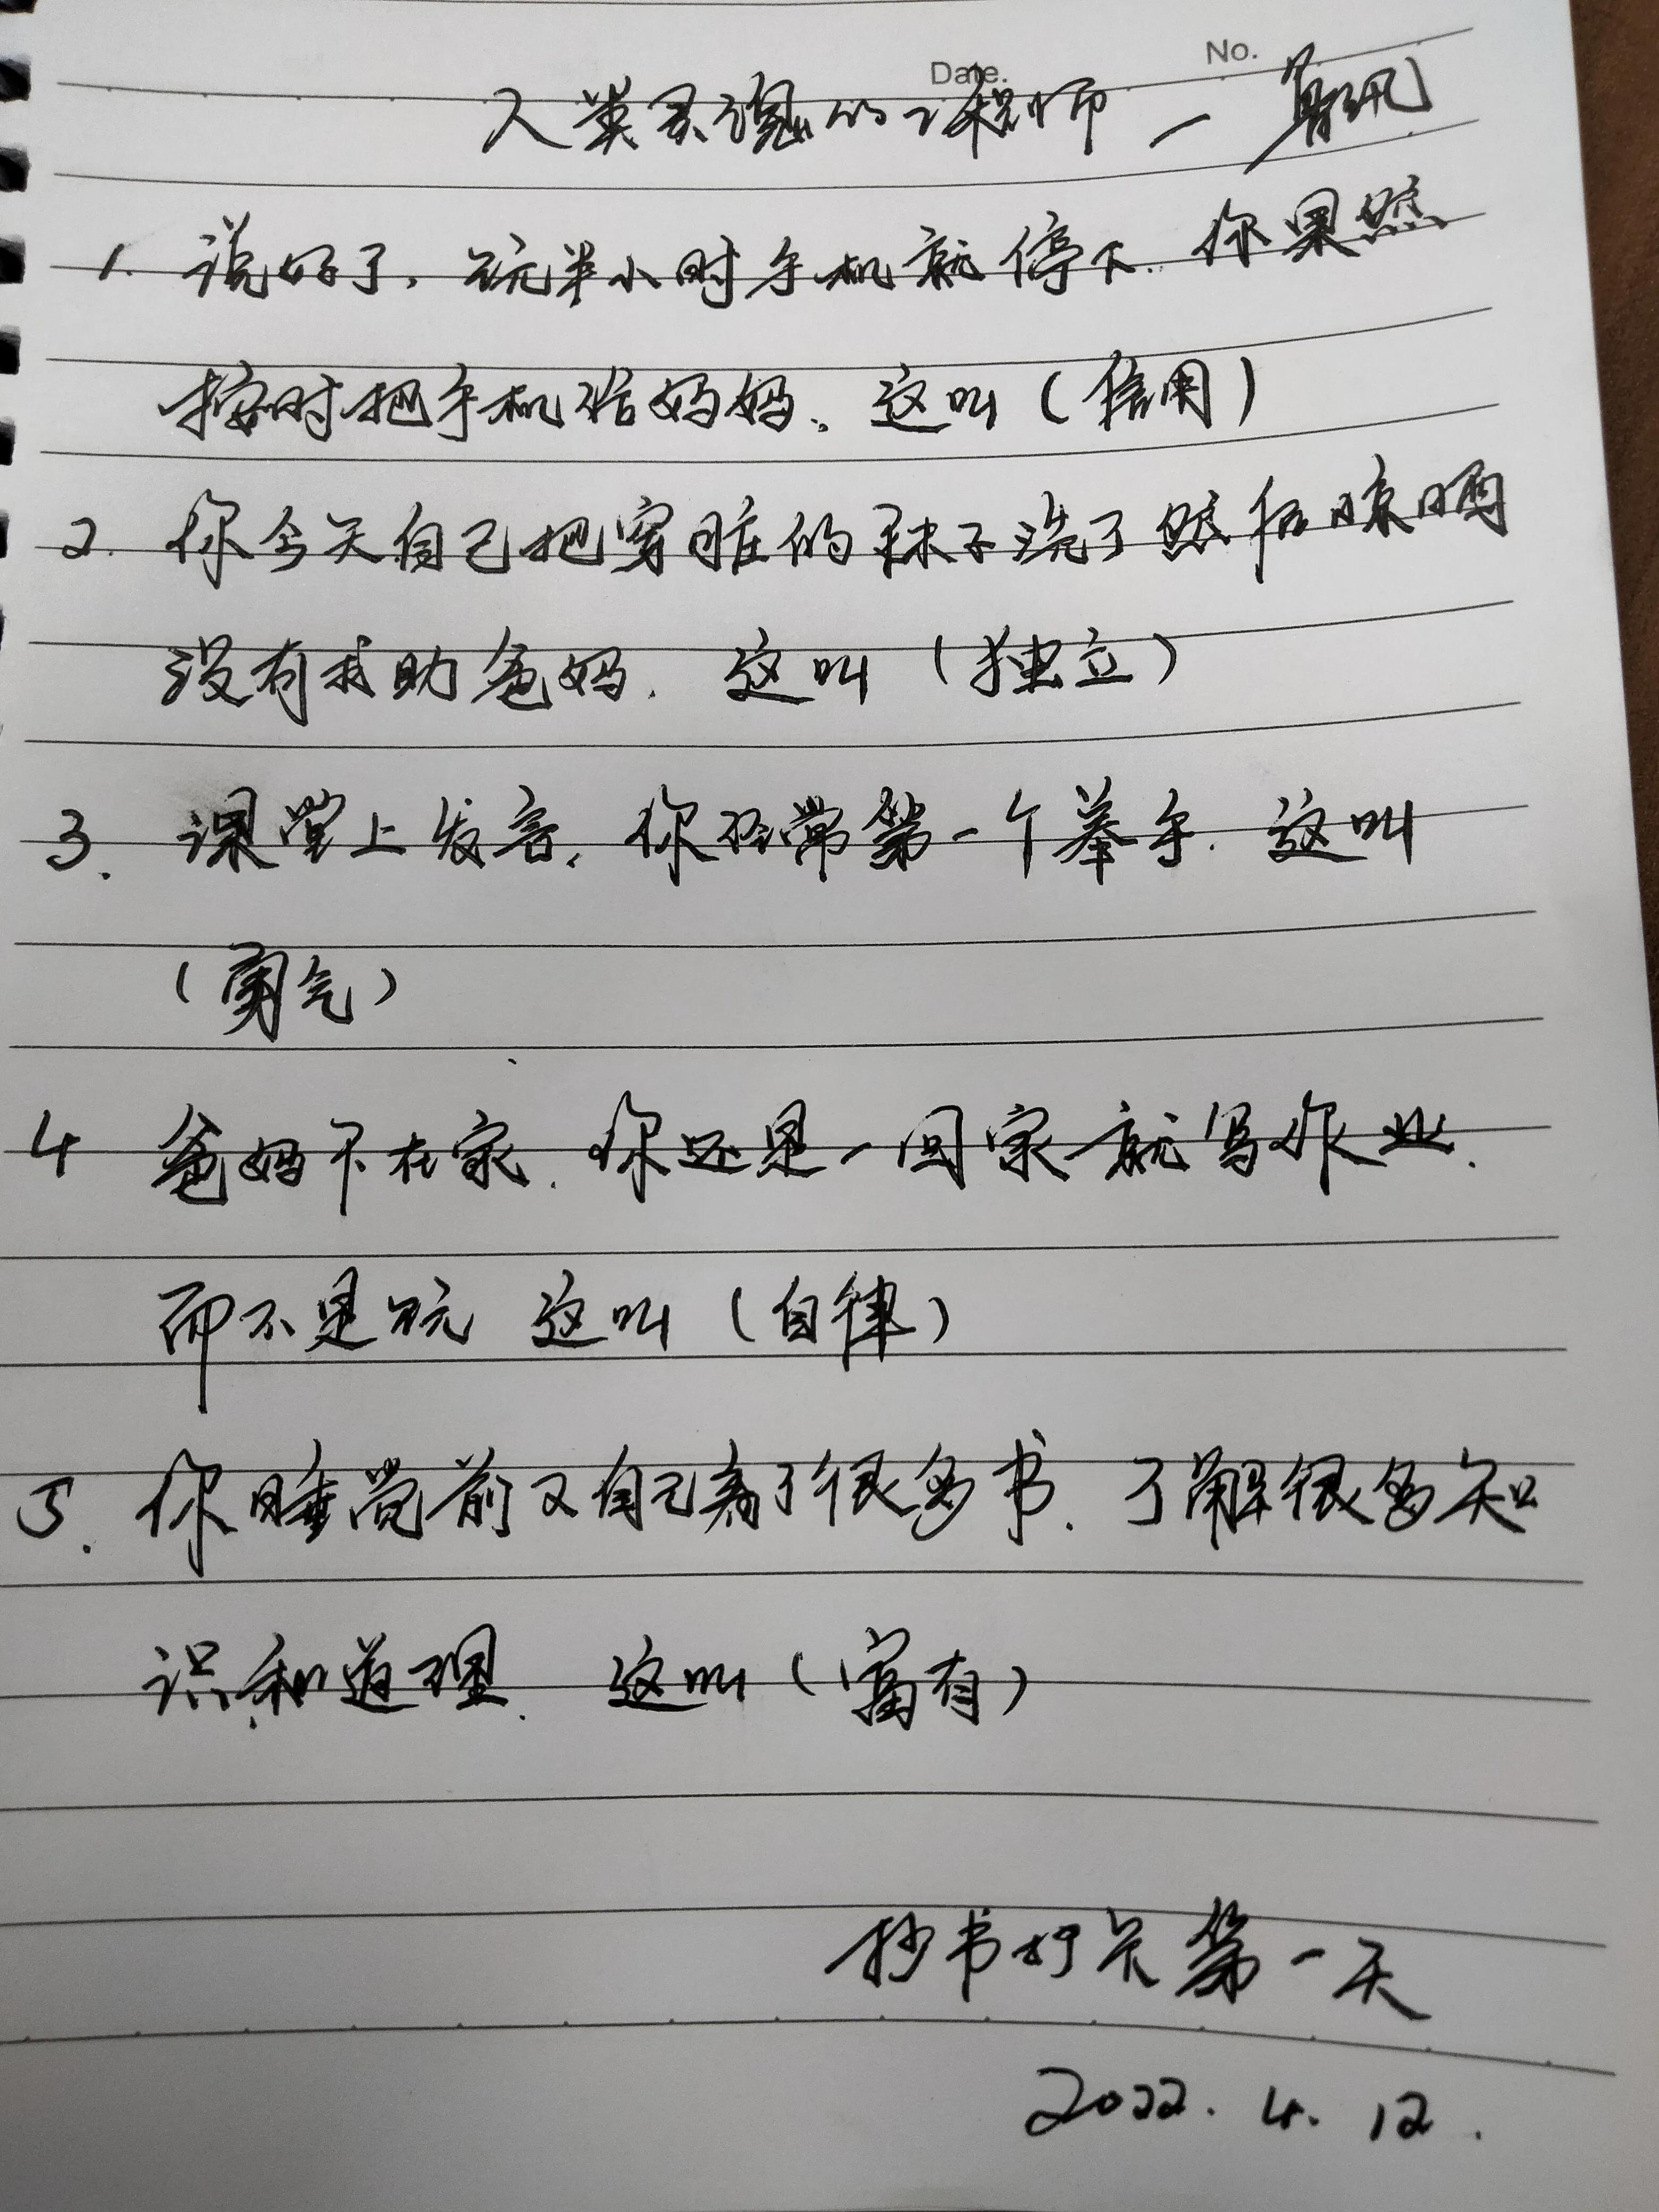 No.
Date.
人类灵魂的工程师 一
1. 说好了，玩半小时手机就停下．你果然
按时把手机给妈妈．这叫（信用）
2. 你今天自己把穿脏的袜子洗了然后晾晒
没有求助爸妈．这叫（独立）
3. 课堂上发言，你经常第一个举手．这叫
（勇气）
4 爸妈不在家．你还是一回家就写作业．
而不是玩 这叫（自律）
5. 你睡觉前又自己读了很多书．了解很多知
识和道理．这叫（富有）
抄书打卡第一天
2022.4.12.